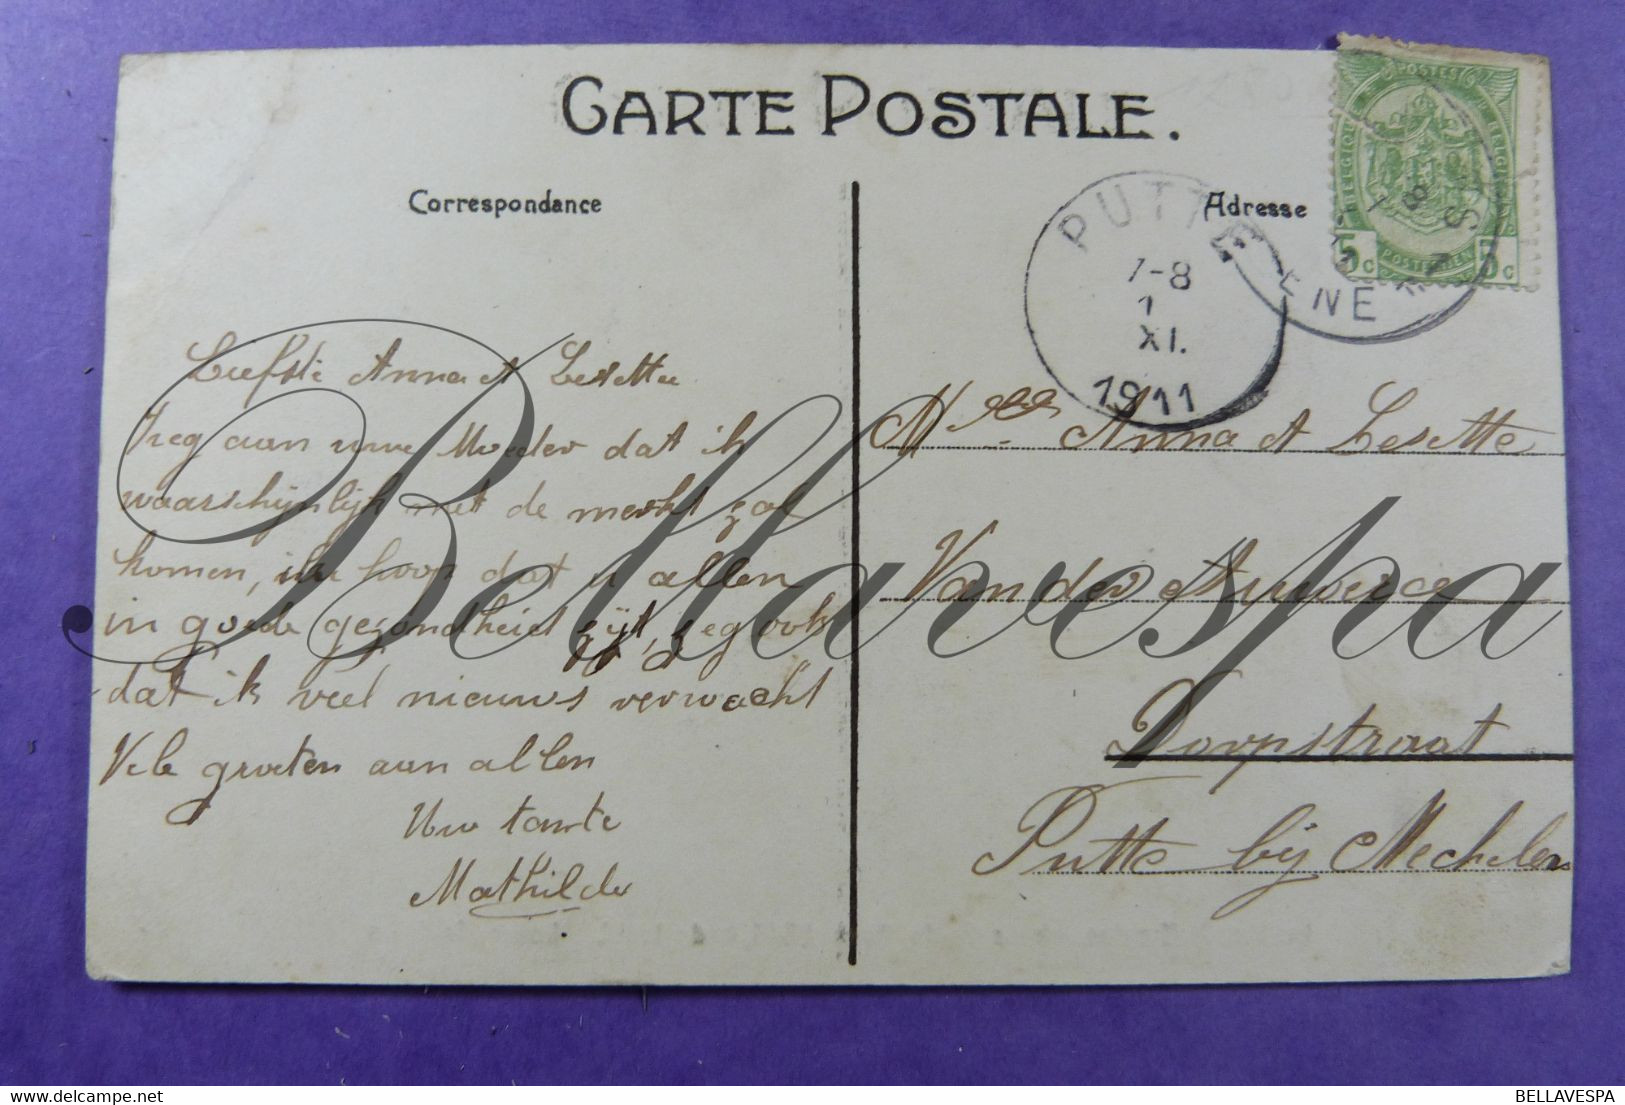 CARTE POSTALE.
Correspondance
Adresse
PUTTE
7-8
1
XI.
1911
BELGIQUE
POSTES
BELGIE
POSTERIJEN
5c
5c
Liefste Anna et Lesette
Zeg aan uwe Moeder dat ik
waarschijnlijk met de merkt zal
komen, ik hoop dat u allen
in goede gezondheid zijt, zeg ook
dat ik veel nieuws verwacht
Vele groeten aan allen
Uw tante
Mathilde
Melles Anna et Lesette
Van der Auwera
Dorpstraat
Putte bij Mechelen
Bellavespa
BELLAVESPA